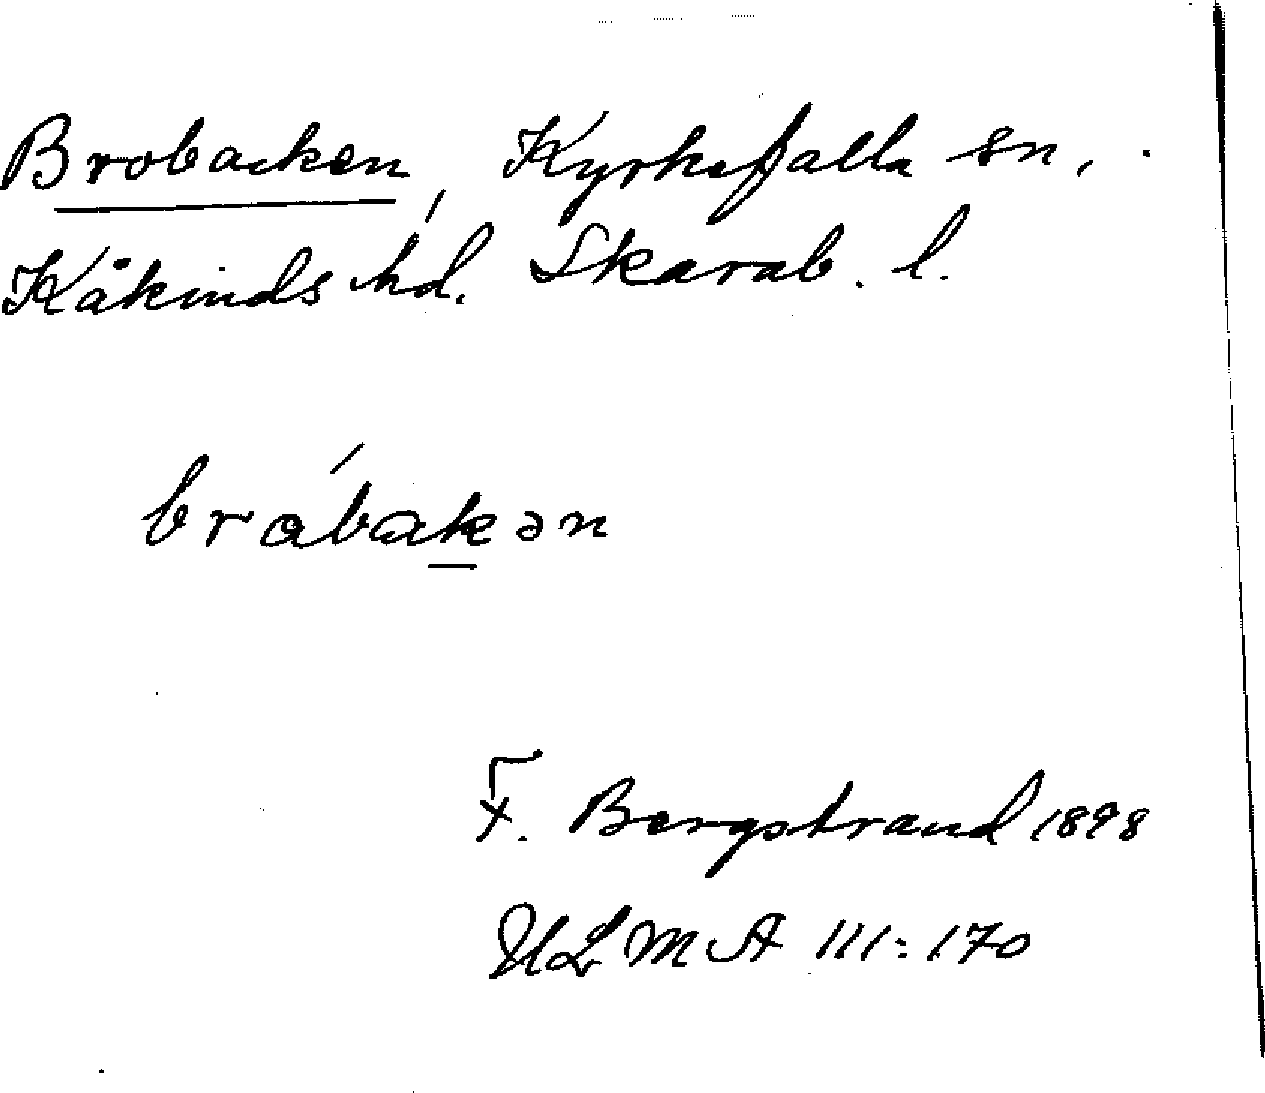 Brobacken, Kyrkefalla sn,
Kåkinds hd. Skarab. l.
bråbakən
F. Bergstrand 1898
ULMA III:170